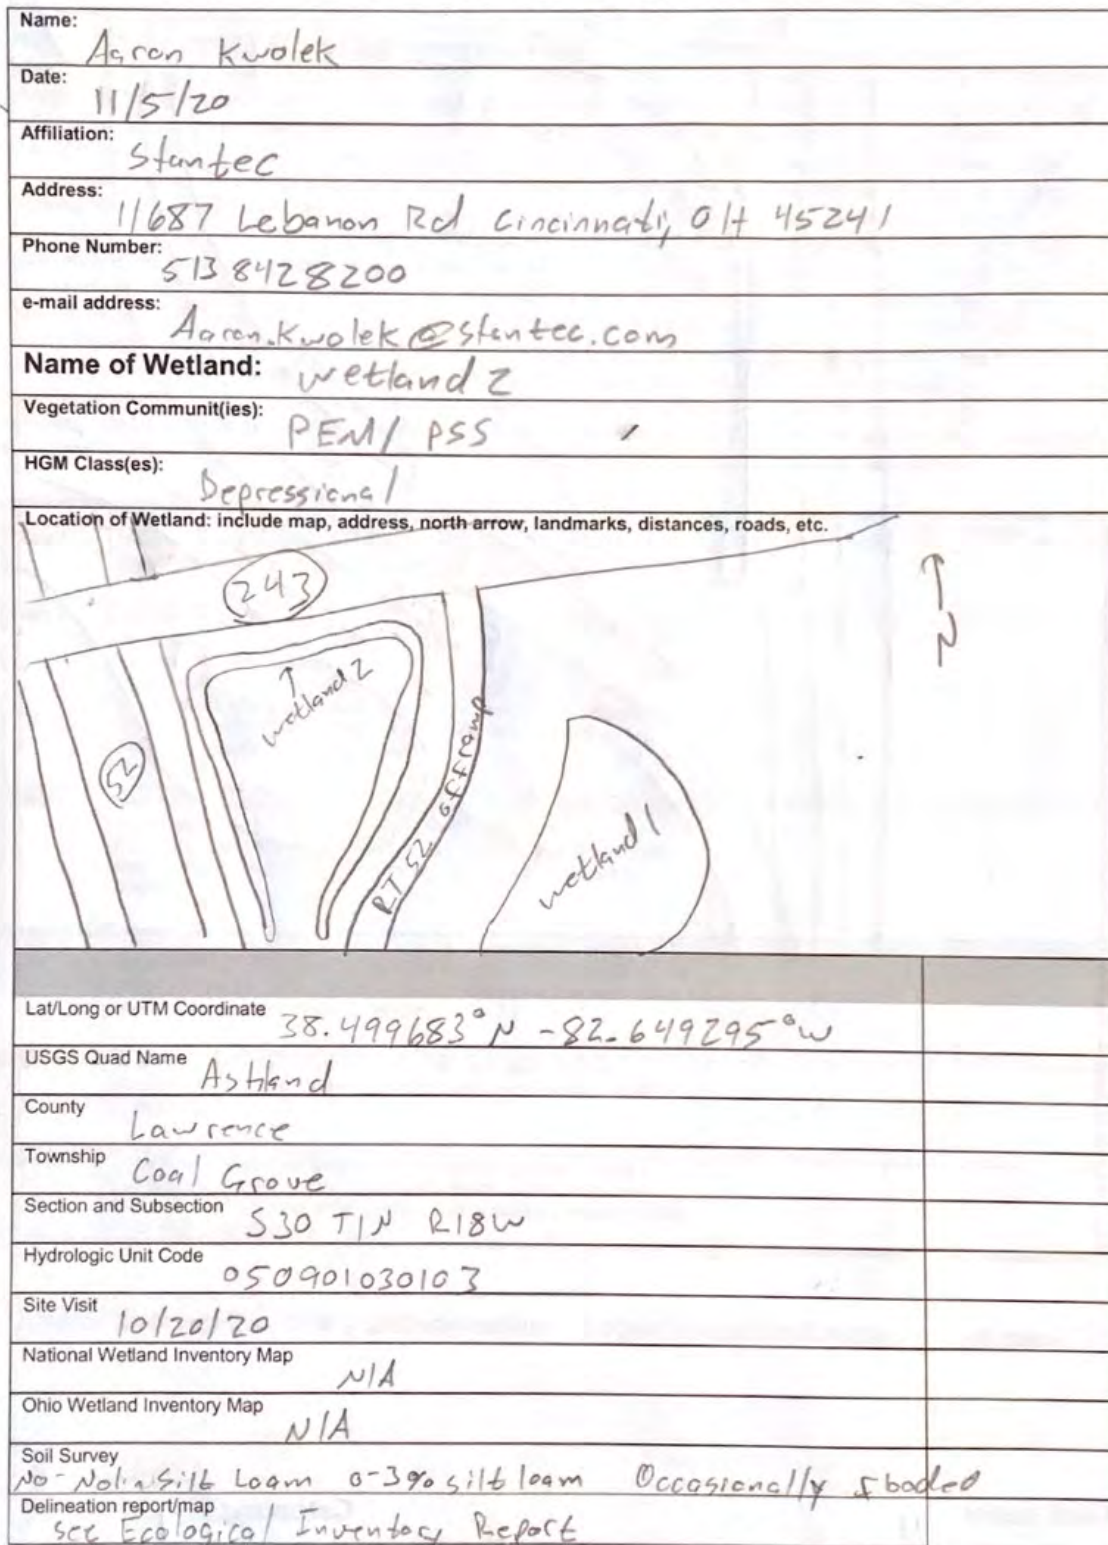 Name:
Aaron Kwolek
Date:
11/5/20
Affiliation:
Stantec
Address:
11687 Lebanon Rd Cincinnati, OH 45241
Phone Number:
513 8428200
e-mail address:
Aaron.Kwolek@stantec.com
Name of Wetland: wetland 2
Vegetation Communit(ies):
PEM/ PSS
HGM Class(es):
Depressional
Location of Wetland: include map, address, north arrow, landmarks, distances, roads, etc.
243
N
wetland 2
52
RT 52 off ramp
wetland 1
Lat/Long or UTM Coordinate 38.499683°N -82.649295°W
USGS Quad Name
Ashland
County
Lawrence
Township
Coal Grove
Section and Subsection
S30 T1N R18W
Hydrologic Unit Code
050901030103
Site Visit
10/20/20
National Wetland Inventory Map
N/A
Ohio Wetland Inventory Map
N/A
Soil Survey
No-Nolin Silt Loam 0-3% silt loam Occasionally flooded
Delineation report/map
See Ecological Inventory Report